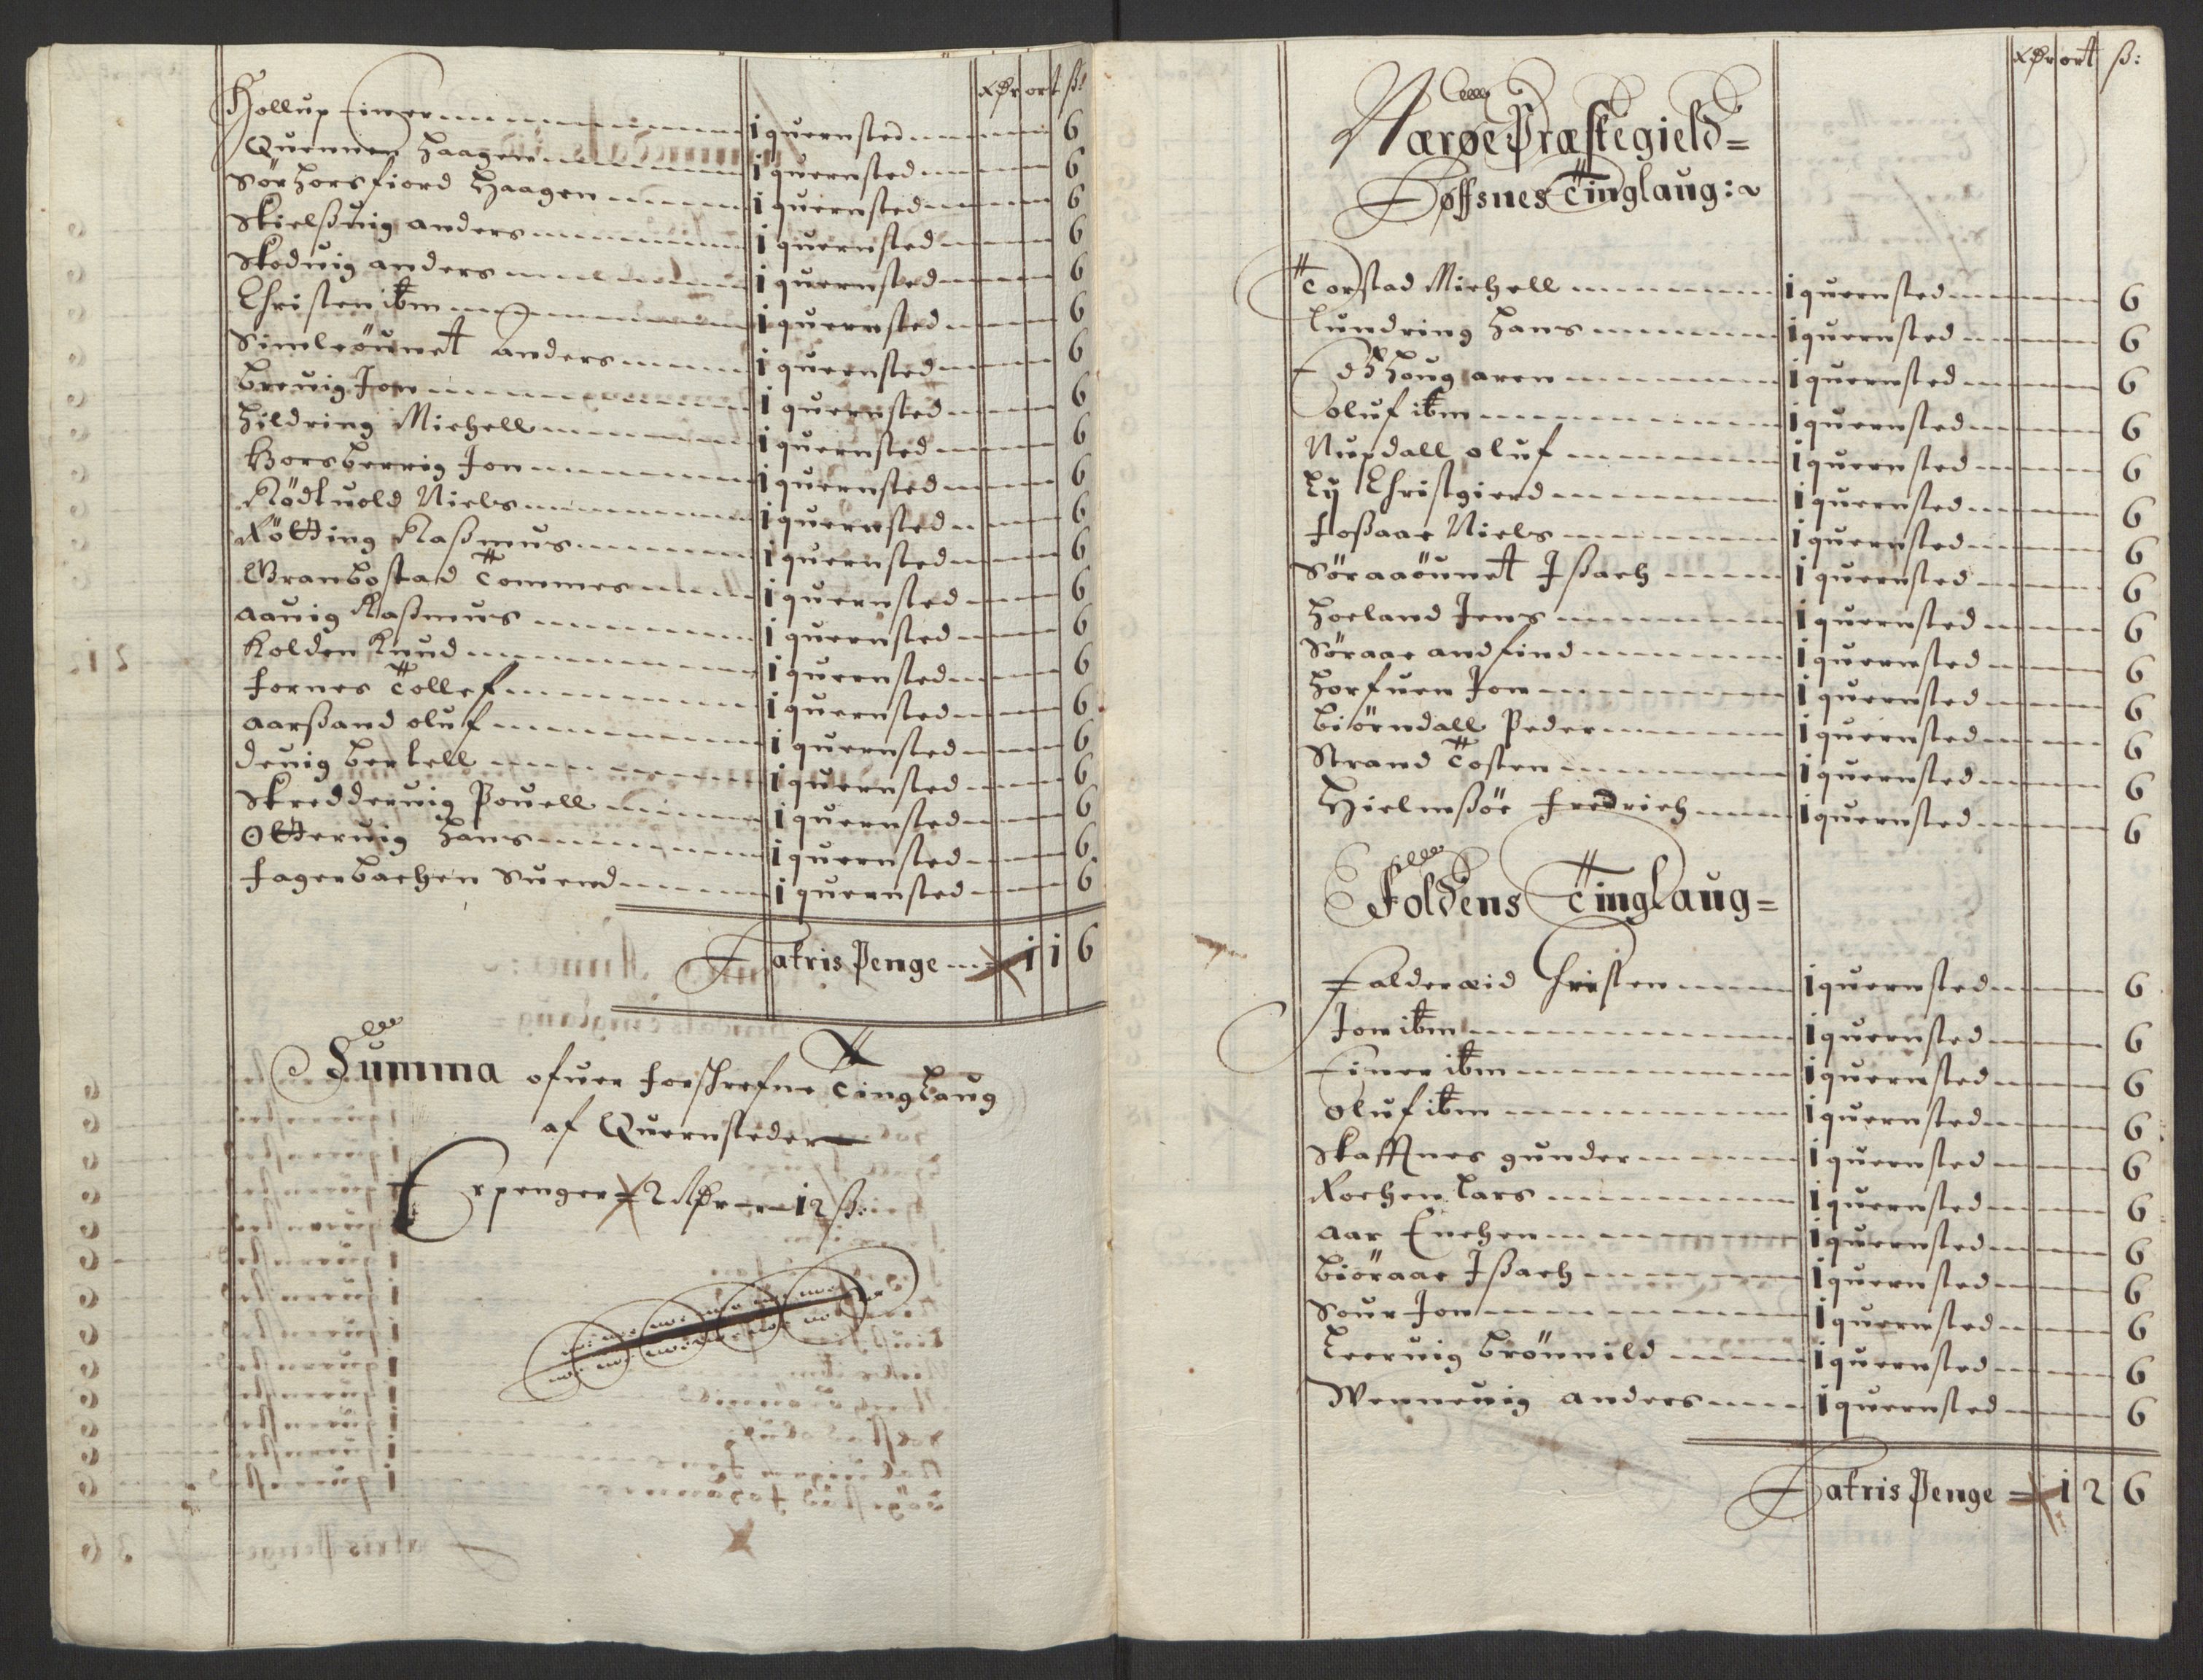 Rdr ort ß:
Hollup Einer 1 quernsted 6
Quennen Haagen 1 quernsted 6
Sörhorsfiord Haagen 1 quernsted 6
Skielßuig anders 1 quernsted 6
Skoduig anders 1 quernsted 6
Christen ibm 1 quernsted 6
Simleöunet anders 1 quernsted 6
Breuig Jon 1 quernsted 6
Hildring Michell 1 quernsted 6
Horsberrig Jon 1 quernsted 6
Rödtuold Niels 1 quernsted 6
Røtting Raßmus 1 quernsted 6
Granbostad Tommes 1 quernsted 6
Aauig Raßmus 1 quernsted 6
Kolden Knud 1 quernsted 6
Fornes Tollef 1 quernsted 6
Aarßand oluf 1 quernsted 6
Deuig Bertell 1 quernsted 6
Skredderuig Pouell 1 quernsted 6
Otteruig Hans 1 quernsted 6
Fagerbachen Suend 1 quernsted 6
Latris Penge 1 1 6
Summa ofuer forschrefne Tinglaug
af Quernsteder
Er penger 2 Rdr 12 ß:
Rdr ort ß:
Nærøe Præstegield=
Løffsnes Tinglaug:
Torstad Michell 1 quernsted 6
Lundring Hans 1 quernsted 6
Ødt Houg aren 1 quernsted 6
oluf ibm 1 quernsted 6
Nupdall oluf 1 quernsted 6
Ly Christgierd 1 quernsted 6
Foßaae Niels 1 quernsted 6
Söraaöunet Jßach 1 quernsted 6
Hoeland Jens 1 quernsted 6
Söraae andfind 1 quernsted 6
Horfuen Jon 1 quernsted 6
Biörndall Peder 1 quernsted 6
Strand Tosten 1 quernsted 6
Hielmßöe Fredrich 1 quernsted 6
Foldens Tinglaug=
Falderæid Christen 1 quernsted 6
Jon ibm 1 quernsted 6
Einer ibm 1 quernsted 6
Oluf ibm 1 quernsted 6
Skaffnes gunder 1 quernsted 6
Rochen Lars 1 quernsted 6
Aar Enchen 1 quernsted 6
Biöraae Jßach 1 quernsted 6
Sour Jon 1 quernsted 6
Leeruig Brönnild 1 quernsted 6
Wenneuig anders 1 quernsted 6
Latris Penge = 1 2 6